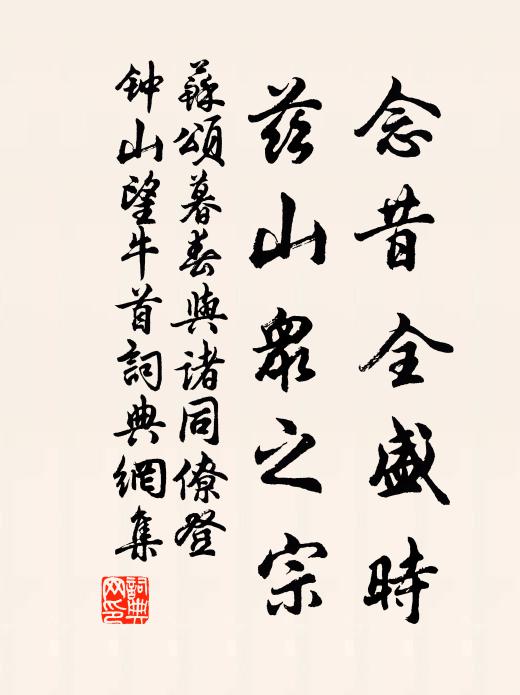 念昔全盛时
兹山众之宗
蘇頌暮春與诸同僚登
钟山望牛首詞典網集
詞典网印